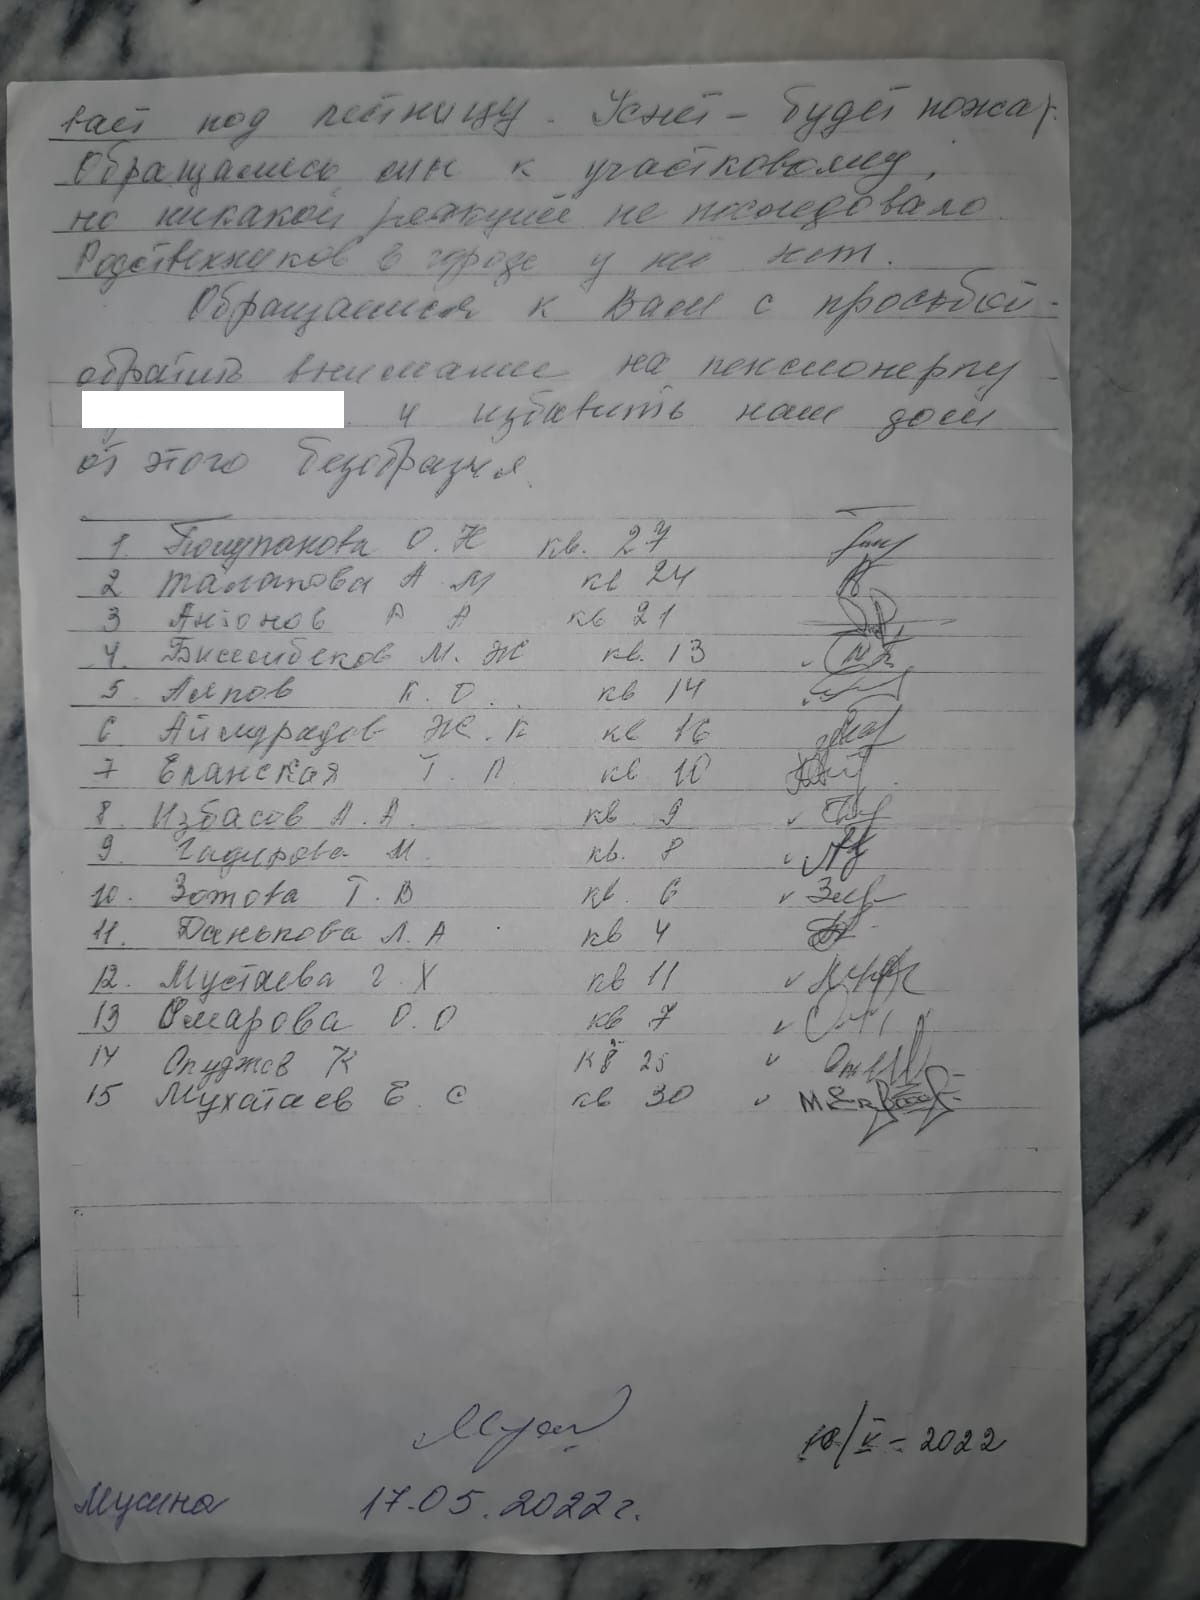 вает под лестницу. Уснёт - будет пожар.
Обращались мы к участковому,
но никакой реакции не последовало.
Родственников в городе у неё нет.
Обращаемся к Вам с просьбой -
обратить внимание на пенсионерку
и избавить наш дом
от этого безобразия.
1. О.Н кв. 27
2 Талапова А М кв 24
3 Антонов Р А кв 21
4. Бисембеков М. Ж кв. 13
5. Аяпов К. О. кв 14
6 Аймурадов Ж. К кв 16
7 Еланская Т. П кв 10
8. Избасов А. А. кв. 9
9. Гадирова М. кв. 8
10. Зотова Т. В кв. 6
11. Данькова Л. А кв 4
12. Мустаева Г. Х кв 11
13 Омарова О. О кв 7
14 К кв 25
15 Мухатаев Е. С кв 30
/V - 2022
Мусина 17.05.2022 г.